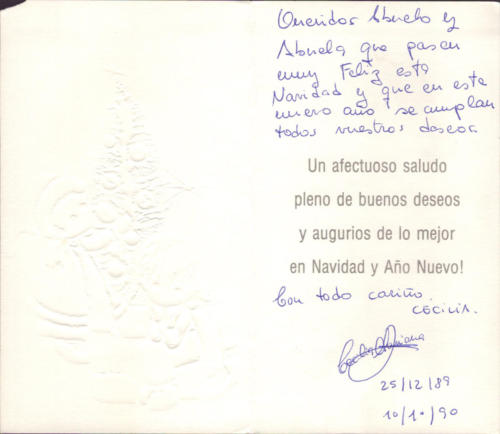 Queridos Abuelo y
Abuela que pasen
muy Feliz esta
Navidad y que en este
nuevo año se cumplan
todos nuestros deseos.
Un afectuoso saludo
pleno de buenos deseos
y augurios de lo mejor
en Navidad y Año Nuevo!
Con todo cariño.
CECILIA.
25/12/89
10/10/90